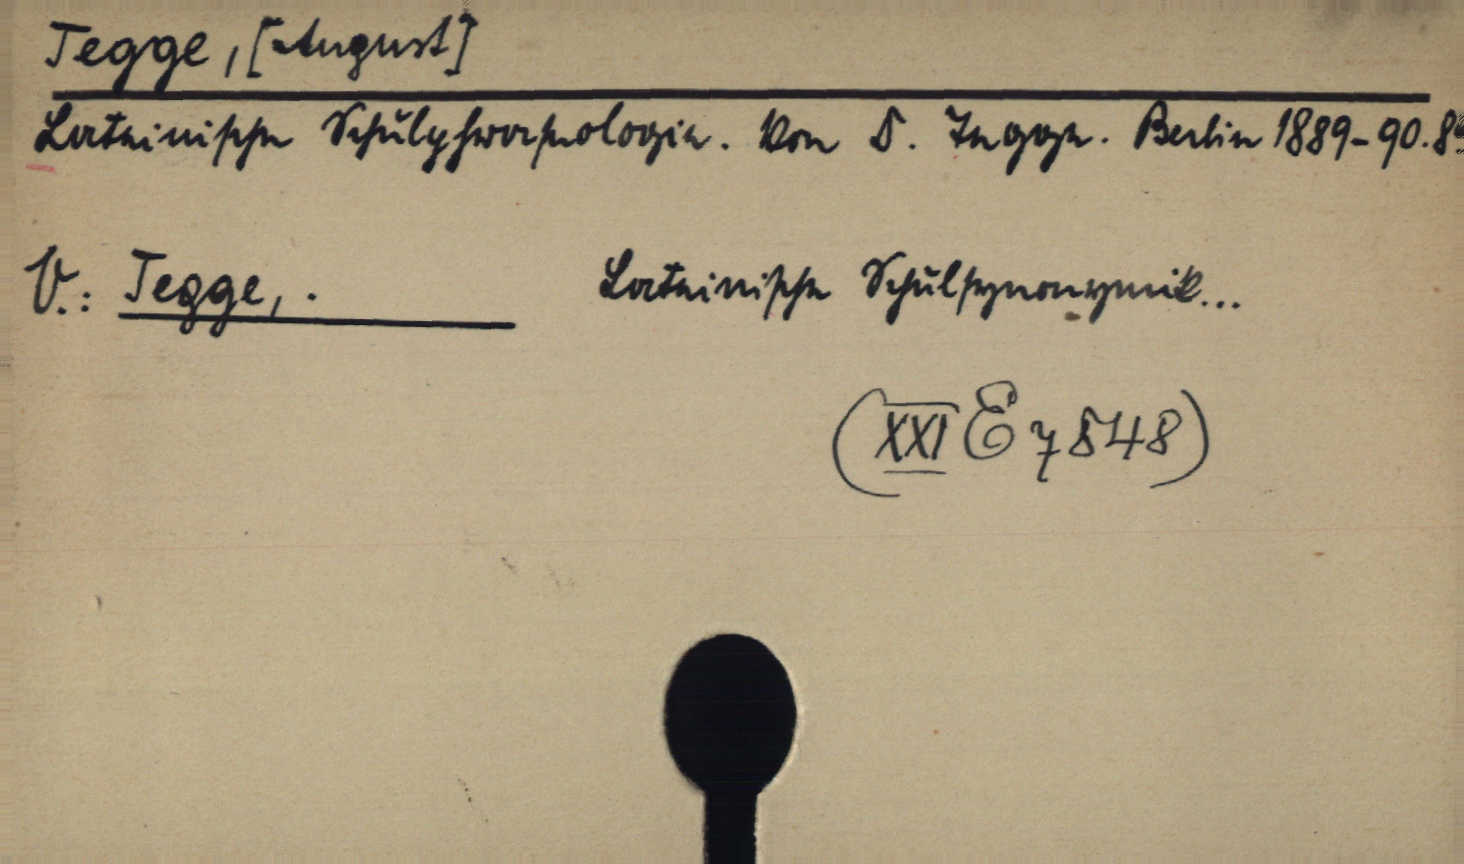 Tegge, [August]
Lateinische Schulphraseologie. Von Tegge. Berlin 1889-90. 8°
V.: Tegge, . Lateinische Schulsynonymik...
(XXI E 7848)